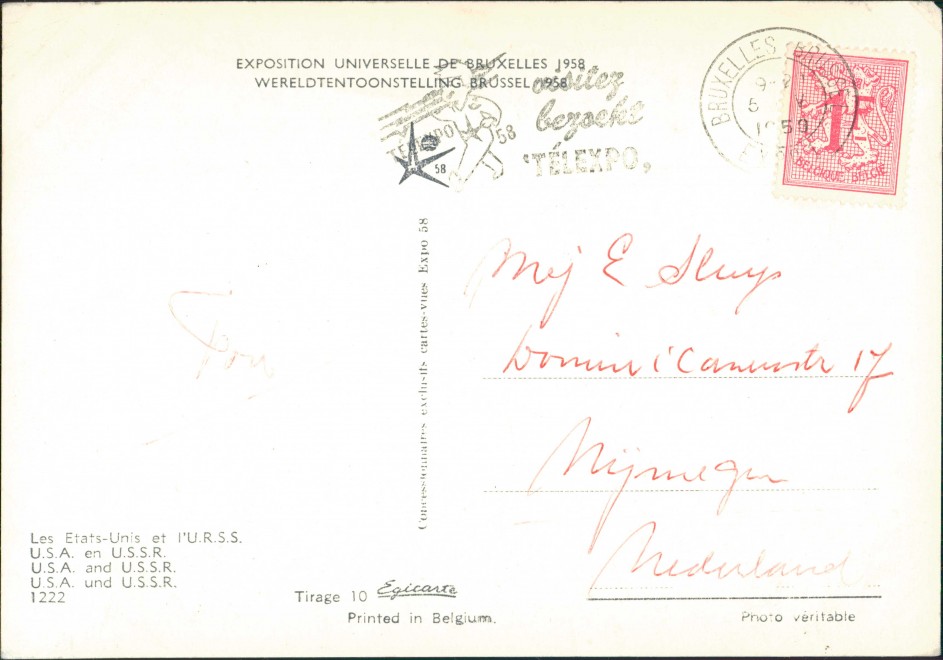 EXPOSITION UNIVERSELLE DE BRUXELLES 1958
WERELDTENTOONSTELLING BRUSSEL 1958
visitez
bezoekt
"TÉLEXPO"
TELEXPO 58
58
BRUXELLES
1959
1F
BELGIQUE BELGIË
Concessionnaires exclusifs cartes-vues Expo 58
Mej E Sluys
17
Nijmegen
Nederland
Les Etats-Unis et l'U.R.S.S.
U.S.A. en U.S.S.R.
U.S.A. and U.S.S.R.
U.S.A. und U.S.S.R.
1222
Tirage 10 Egicarte
Printed in Belgium.
Photo véritable